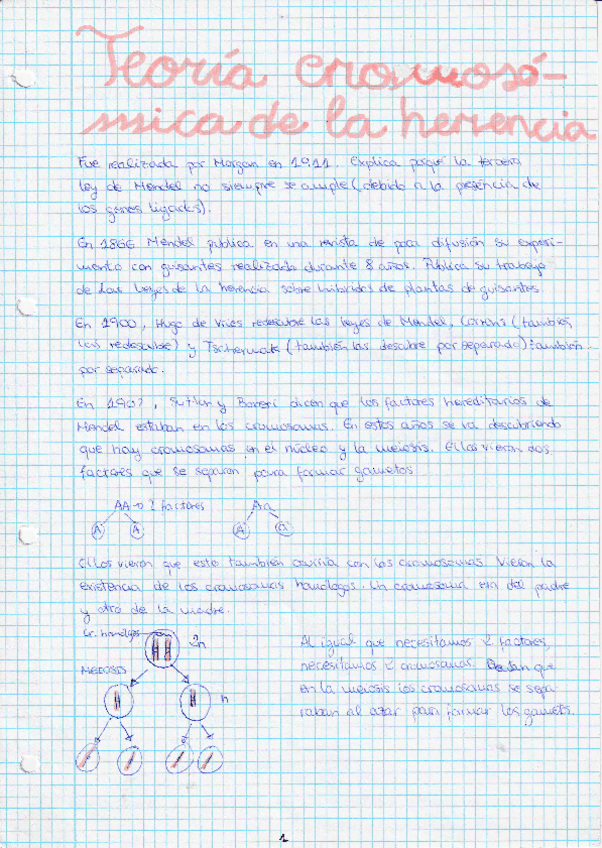 Teoría cromosó-
mica de la herencia
Fue realizada por Morgan en 1911. Explica porqué la tercera
ley de Mendel no siempre se cumple (debido a la presencia de
los genes ligados).
En 1866 Mendel publica en una revista de poca difusión su experi-
mento con guisantes realizada durante 8 años. Publica su trabajo
de las leyes de la herencia sobre híbridos de plantas de guisantes
En 1900, Hugo de Vries redescubre las leyes de Mendel, Correns (también
las redescubre) y Tschermak (también las descubre por separado) también
por separado.
En 190?, Sutton y Boveri dicen que los factores hereditarios de
Mendel estaban en los cromosomas. En estos años se va descubriendo
que hay cromosomas en el núcleo y la meiosis. Ellos vieron dos
factores que se separan para formar gametos
AA → 2 factores Aa
A A A a
Ellos vieron que esto también ocurría con los cromosomas. Vieron la
existencia de los cromosomas homólogos. Un cromosoma era del padre
y otro de la madre.
Cr. homólogos 2n
MEIOSIS
n
Al igual que necesitamos 2 factores,
necesitamos 2 cromosomas. Decían que
en la meiosis los cromosomas se sepa-
raban al azar para formar los gametos.
1